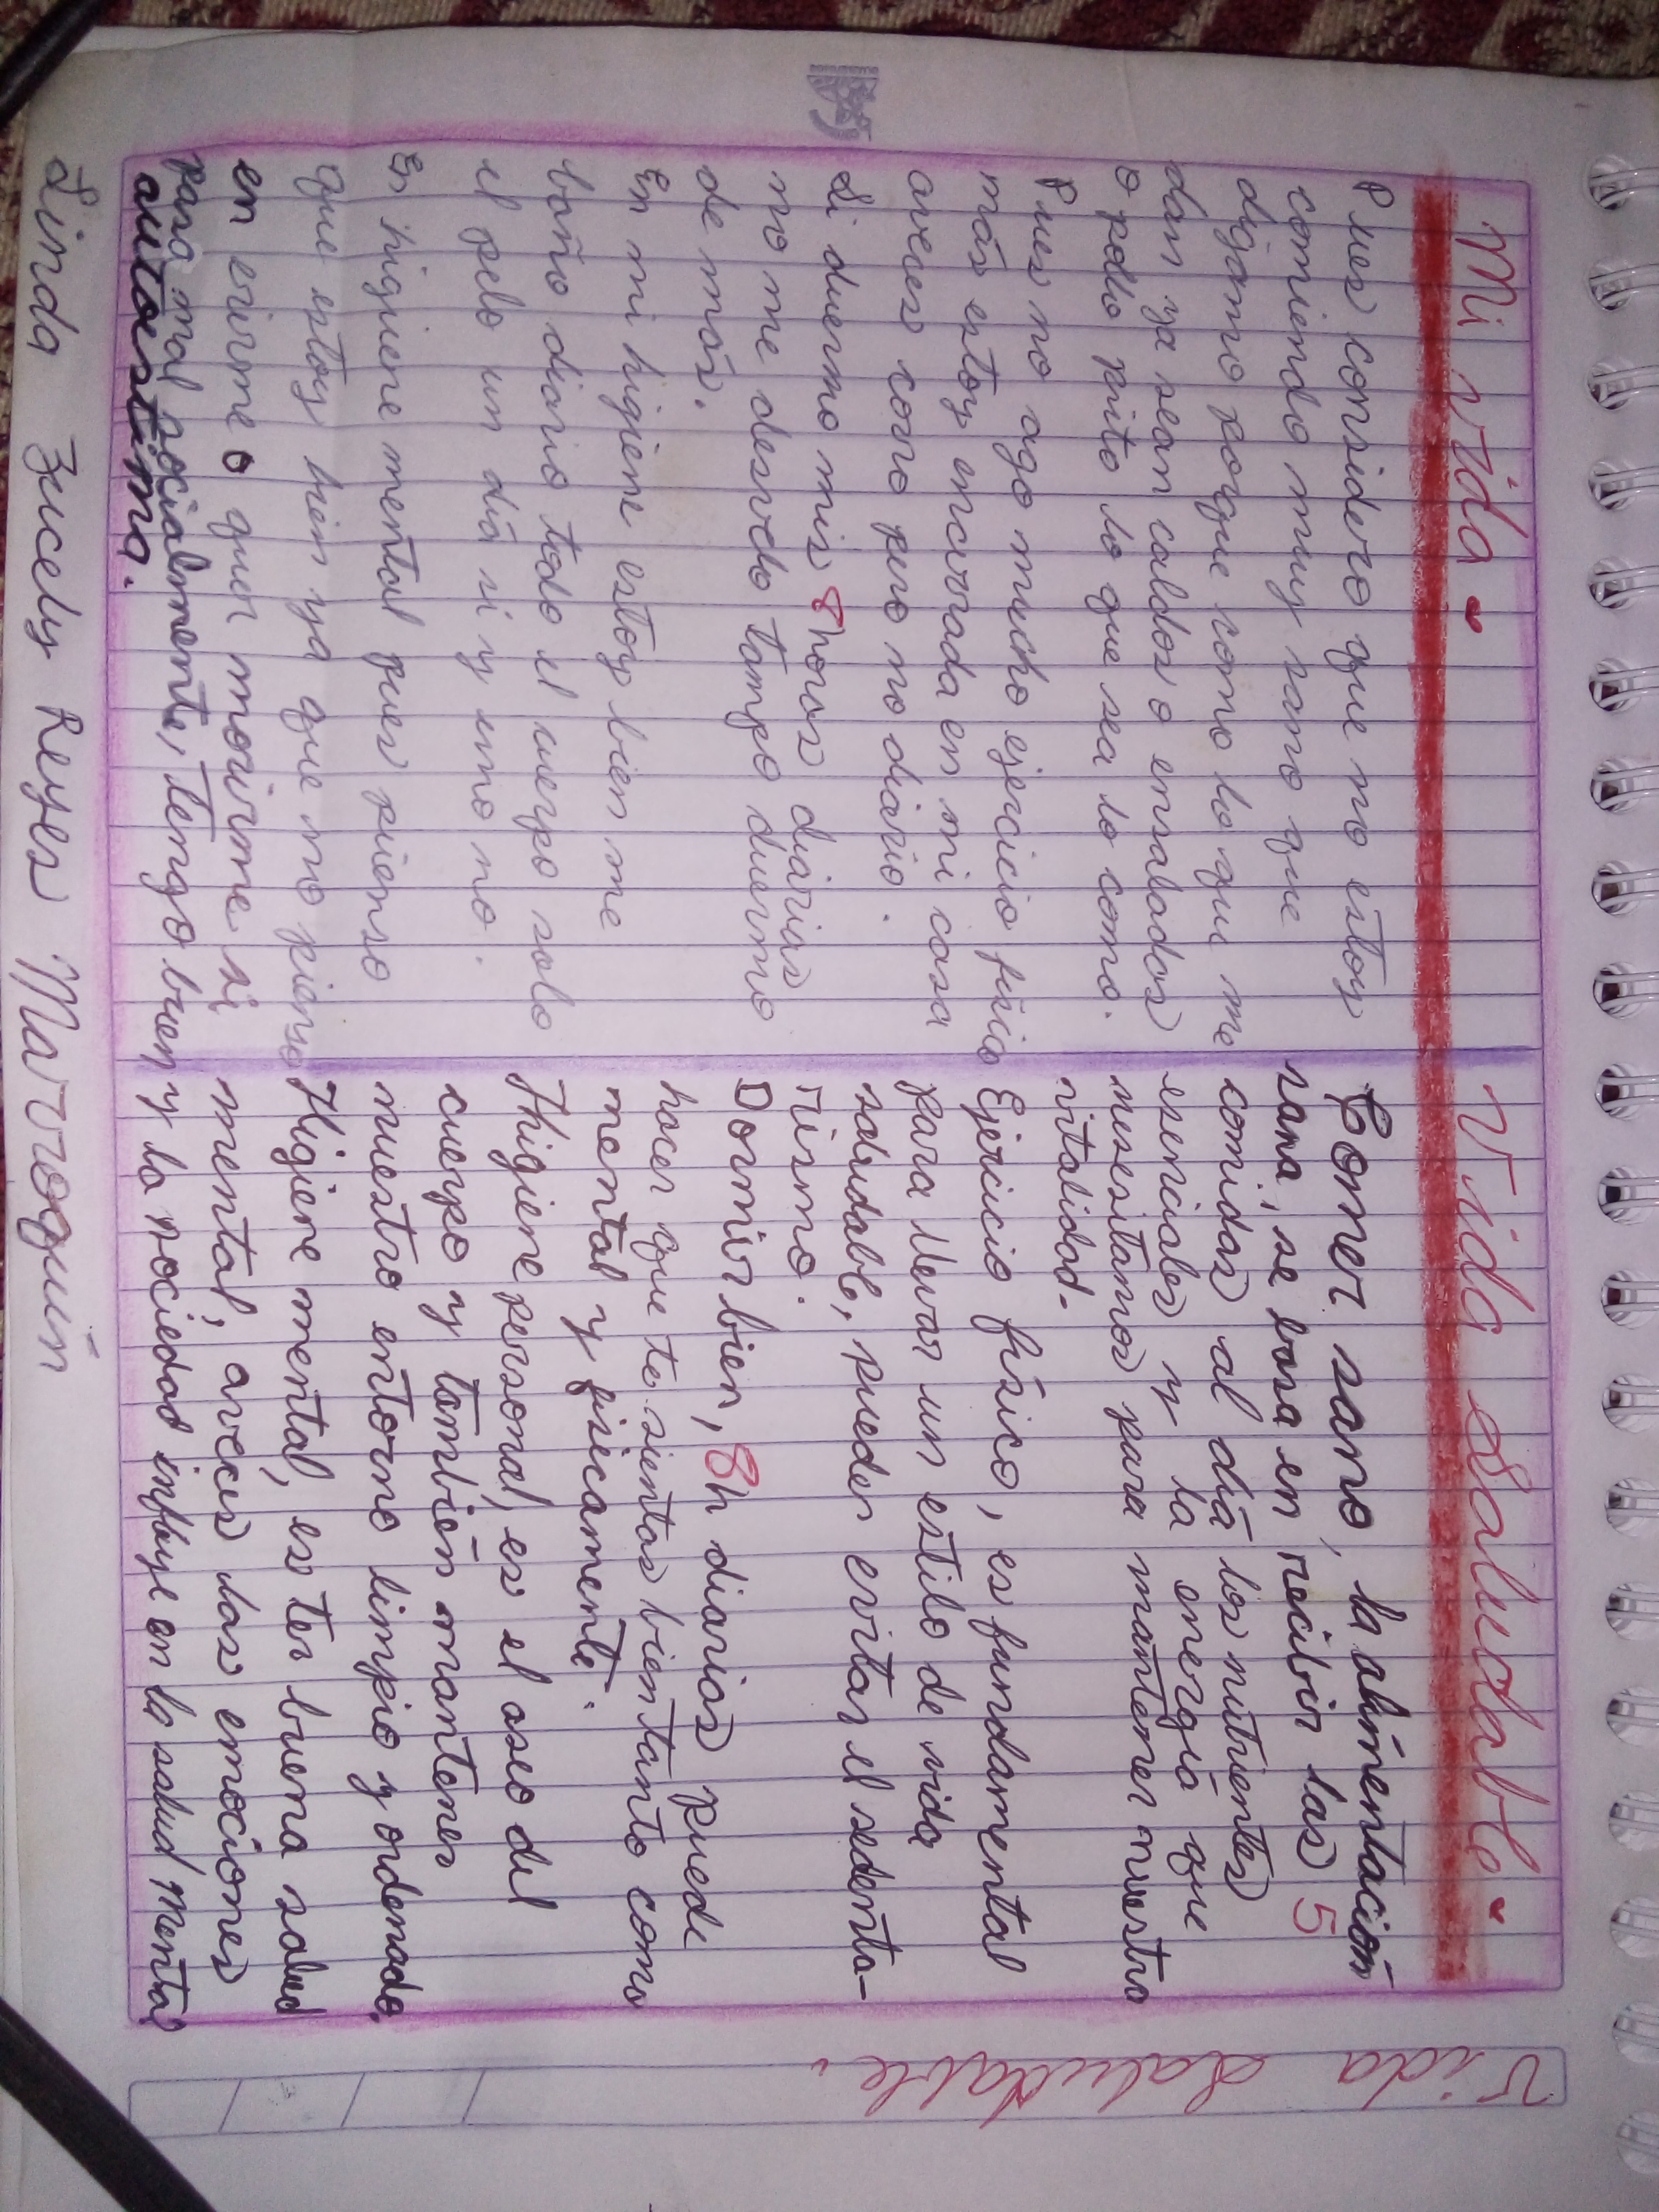 Vida Saludable.
Mi vida
Pues considero que no estoy
comiendo muy sano que
digamo porque como lo que me
dan ya sean caldos o ensaladas
o pollo frito lo que sea lo como.
Pues no ago mucho ejercicio físico
más estoy encerrada en mi casa
aveces corro pero no diario.
Si duermo mis 8 horas diarias
no me desvelo tampo duermo
de más.
En mi higiene estoy bien me
baño diario todo el cuerpo solo
el pelo un día si y uno no.
En higiene mental pues pienso
que estoy bien ya que no pienso
en eirme o quer morirme si
pana mal socialmente, tengo buen
autoestima.
Vida Saludable
Comer sano, la alimentación
sana, se basa en recibir las 5
comidas al día los nutrientes
esenciales y la energía que
nesesitamos para mantener nuestra
vitalidad.
Ejercicio físico, es fundamental
para llevar un estilo de vida
saludable, puedes evitar el sedenta-
rismo.
Dormir bien, 8h diarias puede
hacer que te sientas bien tanto como
mental y físicamente.
Higiene personal, es el aseo del
cuerpo y también mantener
nuestro entorno limpio y ordenado.
Higiene mental, es ter buena salud
mental, aveces las emociones
y la sociedad influye en la salud mental
Linda Zucely Reyes Marroquín